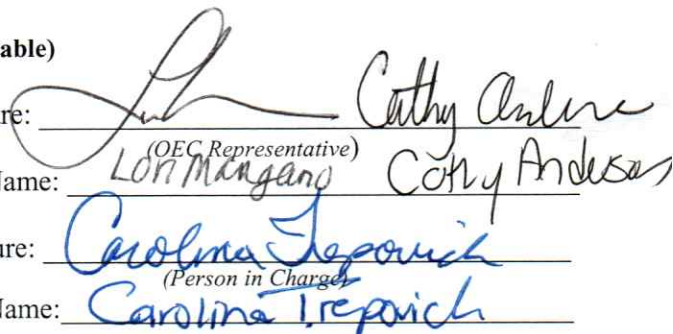 able)
re: Cathy
(OEC Representative)
Name: Lori Mangano Cathy Anderson
ure: Carolina Trepovich
(Person in Charge)
Name: Carolina Trepovich